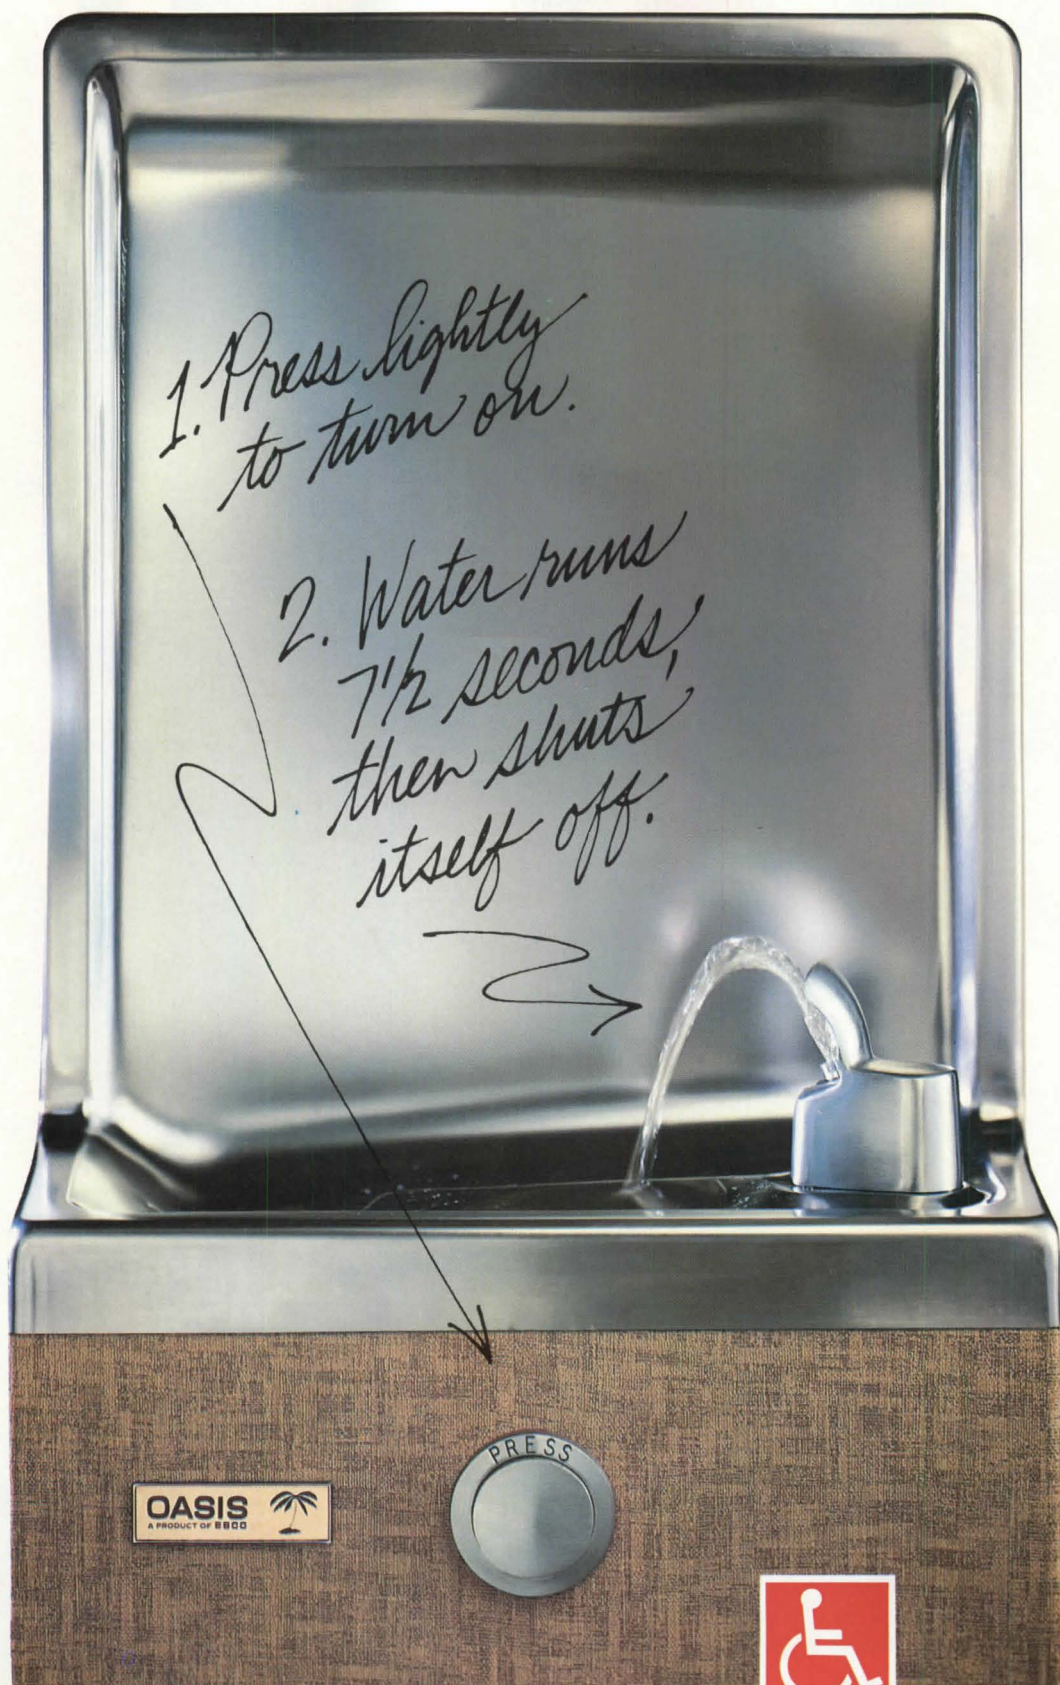 1. Press lightly
to turn on.
2. Water runs
7 1/2 seconds,
then shuts
itself off.
PRESS
OASIS
A PRODUCT OF EBCO